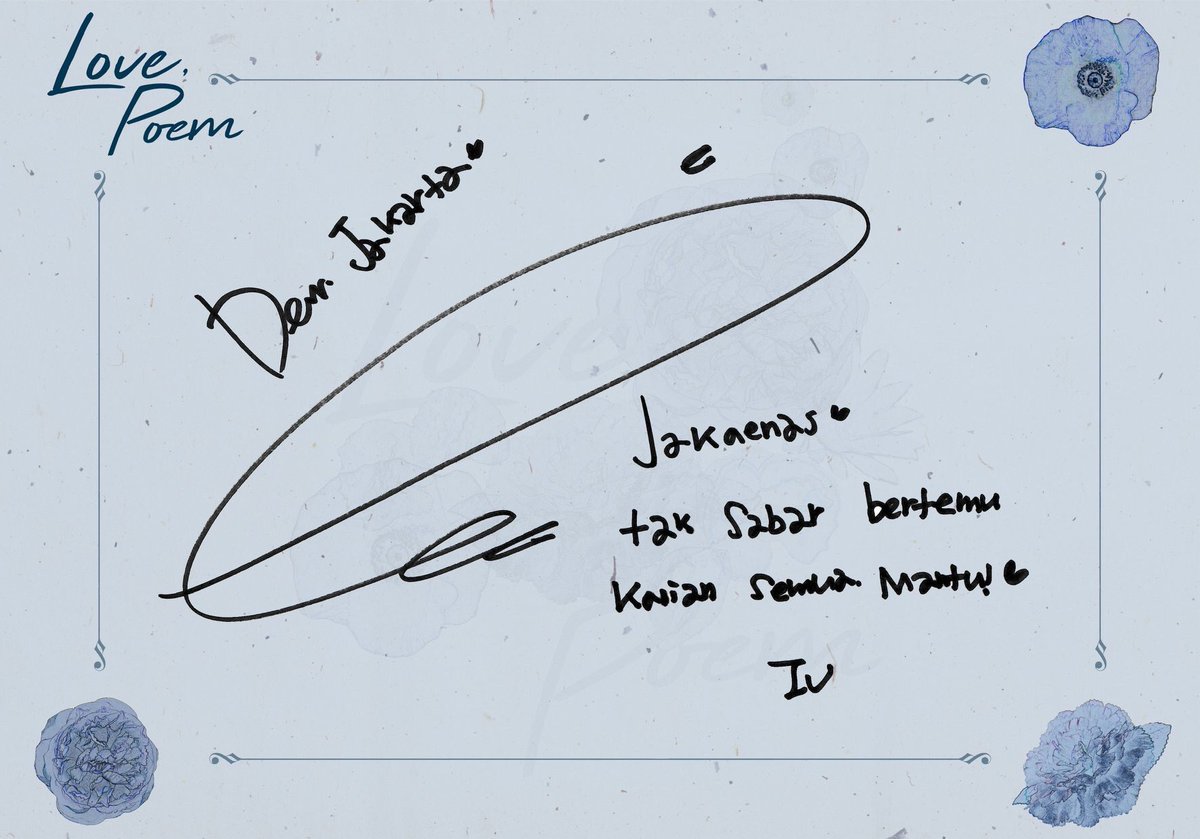 Love,
Poem
Dear. Jakarta
Jakaenas
tak sabar bertemu
Kalian semua. Mantu!
IU
Love
Poem